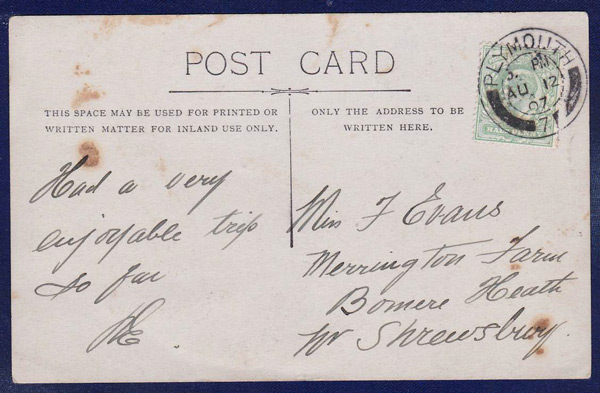 POST CARD
THIS SPACE MAY BE USED FOR PRINTED OR
WRITTEN MATTER FOR INLAND USE ONLY.
ONLY THE ADDRESS TO BE
WRITTEN HERE.
PLYMOUTH
PM
AU 12
07
7
HALFPENNY
Had a very
enjoyable trip
so far
Miss F Evans
Merrington Farm
Bomere Heath
Nr Shrewsbury.